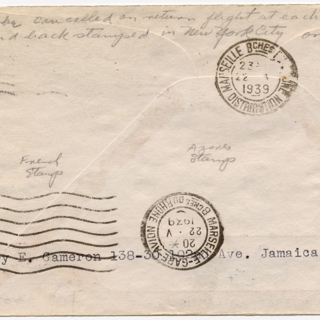 be cancelled on return flight at each
d back stamped in New York City on
MARSEILLE Bches DU RHONE
22
1939
DISTRIBUTION
French Stamps
Azores Stamps
MARSEILLE-GARE-AVION
Bches DU RHONE
20
22 V
1939
y E. Cameron 138-30 Ave. Jamaica